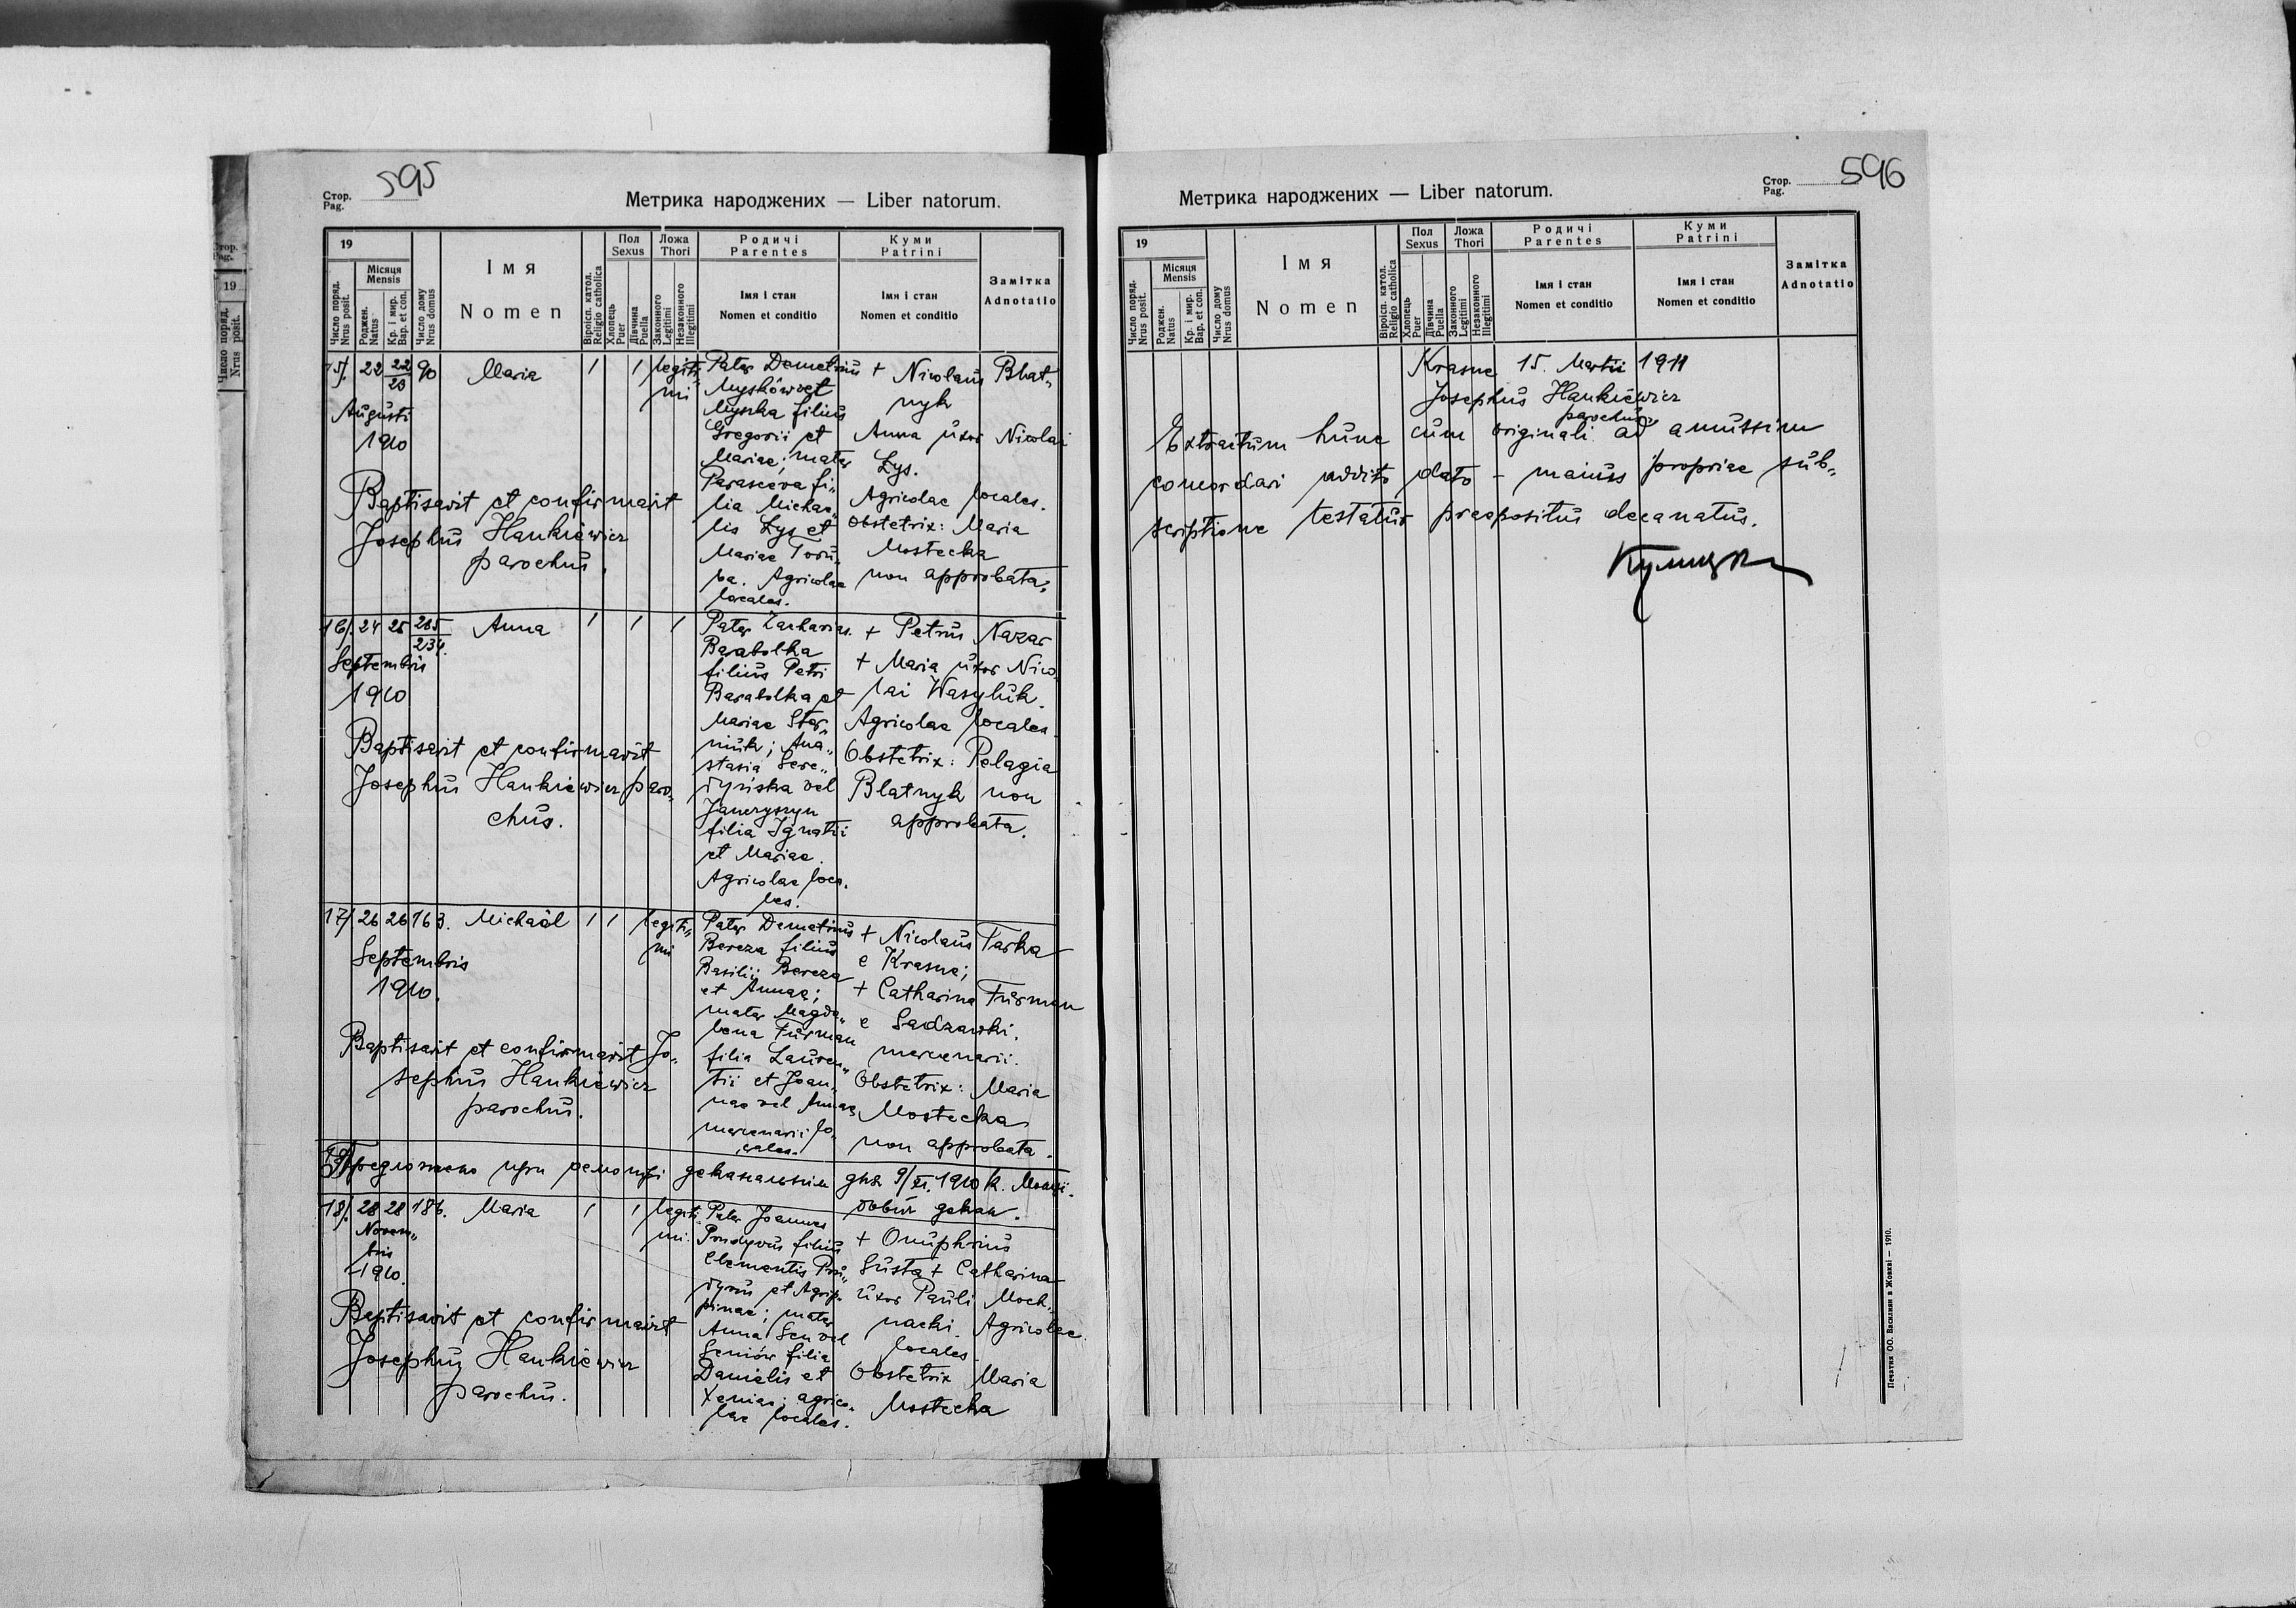 Стор.
Pag.
595
Метрика народжених — Liber natorum.
19
Число поряд.
Nrus posit.
Місяця
Mensis
Роджен.
Natus
Кр. і мир.
Bap. et con.
Число дому
Nrus domus
Імя
Nomen
Віроісп. катол.
Religio catholica
Пол
Sexus
Хлопець
Puer
Дівчина
Puella
Ложа
Thori
Законного
Legitimi
Незаконного
Illegitimi
Родичі
Parentes
Імя і стан
Nomen et conditio
Куми
Patrini
Імя і стан
Nomen et conditio
Замітка
Adnotatio
15/. 22 22/23 90 Maria 1 1 legiti„
mi
Augusti
1910
Baptisavit et confirmavit
Josephus Hankiewicz
parochus.
Pater Demetrius
Mysków vel
Myska filius
Gregorii et
Mariae; mater
Parasceva fi„
lia Michae„
lis Lys et
Mariae
Agricolae
locales.
+ Nicolaus Blat„
nyk
Anna uxor Nicolai
Lys.
Agricolae locales.
Obstetrix: Maria
Mostecka
non approbata.
16/. 24 25 265/234. Anna 1 1 1
Septembris
1910
Baptisavit et confirmavit
Josephus Hankiewicz paro„
chus.
Pater Zacharias.
Barabolka
filius Petri
Barabolka et
Mariae
Ana„
stasia
vel
Janczyszyn
filia Ignatii
et Mariae.
Agricolae loca„
les.
+ Petrus Nazar
+ Maria uxor Nico„
lai Wasyluk.
Agricolae locales.
Obstetrix: Pelagia
Blatnyk non
approbata.
17/. 26 26 163. Michaël 1 1 legiti„
mi
Septembris
1910.
Baptisavit et confirmavit Jo„
sephus Hankiewicz
parochus.
Pater Demetrius
Bereza filius
Basilii Bereza
et Annae;
mater Magda„
lena Furman
filia Lauren„
tii et Joan„
nae vel Annae
mercenarii lo„
cales.
+ Nicolaus Tarka
e Krasne;
+ Catharina Furman
e Sadzawki.
mercenarii.
Obstetrix: Maria
Mostecka
non approbata.
Предложено при деканальнім дня 9/XI. 1910
декан.
18/. 28 28 186. Maria 1 1 legiti„
mi.
Novem„
bris
1910.
Baptisavit et confirmavit
Josephus Hankiewicz
parochus.
Pater Joannes
filius
Clementis
et Agrip„
pinae; mater
Anna Sen vel
Seniów filia
Danielis et
Xeniae; agrico„
lae locales.
+ Onuphrius
Susta + Catharina
uxor Pauli Moch„
nacki. Agricolae
locales.
Obstetrix Maria
Mostecka
Метрика народжених — Liber natorum.
Стор.
Pag.
596
19
Число поряд.
Nrus posit.
Місяця
Mensis
Роджен.
Natus
Кр. і мир.
Bap. et con.
Число дому
Nrus domus
Імя
Nomen
Віроісп. катол.
Religio catholica
Пол
Sexus
Хлопець
Puer
Дівчина
Puella
Ложа
Thori
Законного
Legitimi
Незаконного
Illegitimi
Родичі
Parentes
Імя і стан
Nomen et conditio
Куми
Patrini
Імя і стан
Nomen et conditio
Замітка
Adnotatio
Krasne 15. Martii 1911
Josephus Hankiewicz
parochus
Extractum hunc cum originali ad amussim
concordari addito dato - manus propriae sub„
scriptione testatur praepositus decanatus.
Печатня ОО. Василиян в Жовкві — 1910.